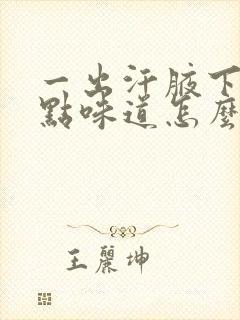 一出汗腋下
點味道怎麼
王麗坤